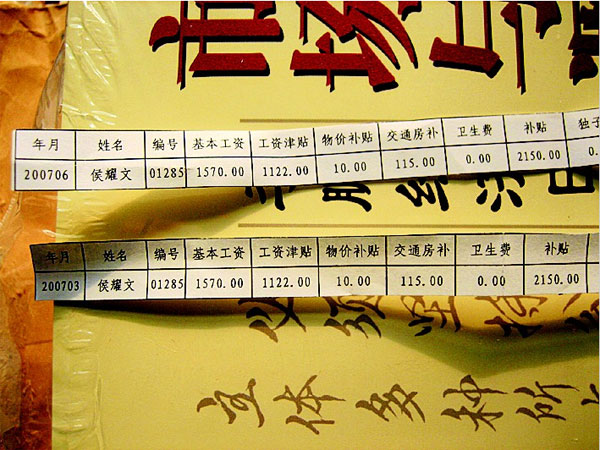 年月 姓名 编号 基本工资 工资津贴 物价补贴 交通房补 卫生费 补贴 独子
200706 侯耀文 01285 1570.00 1122.00 10.00 115.00 0.00 2150.00 0.
年月 姓名 编号 基本工资 工资津贴 物价补贴 交通房补 卫生费 补贴
200703 侯耀文 01285 1570.00 1122.00 10.00 115.00 0.00 2150.00
立体多种所